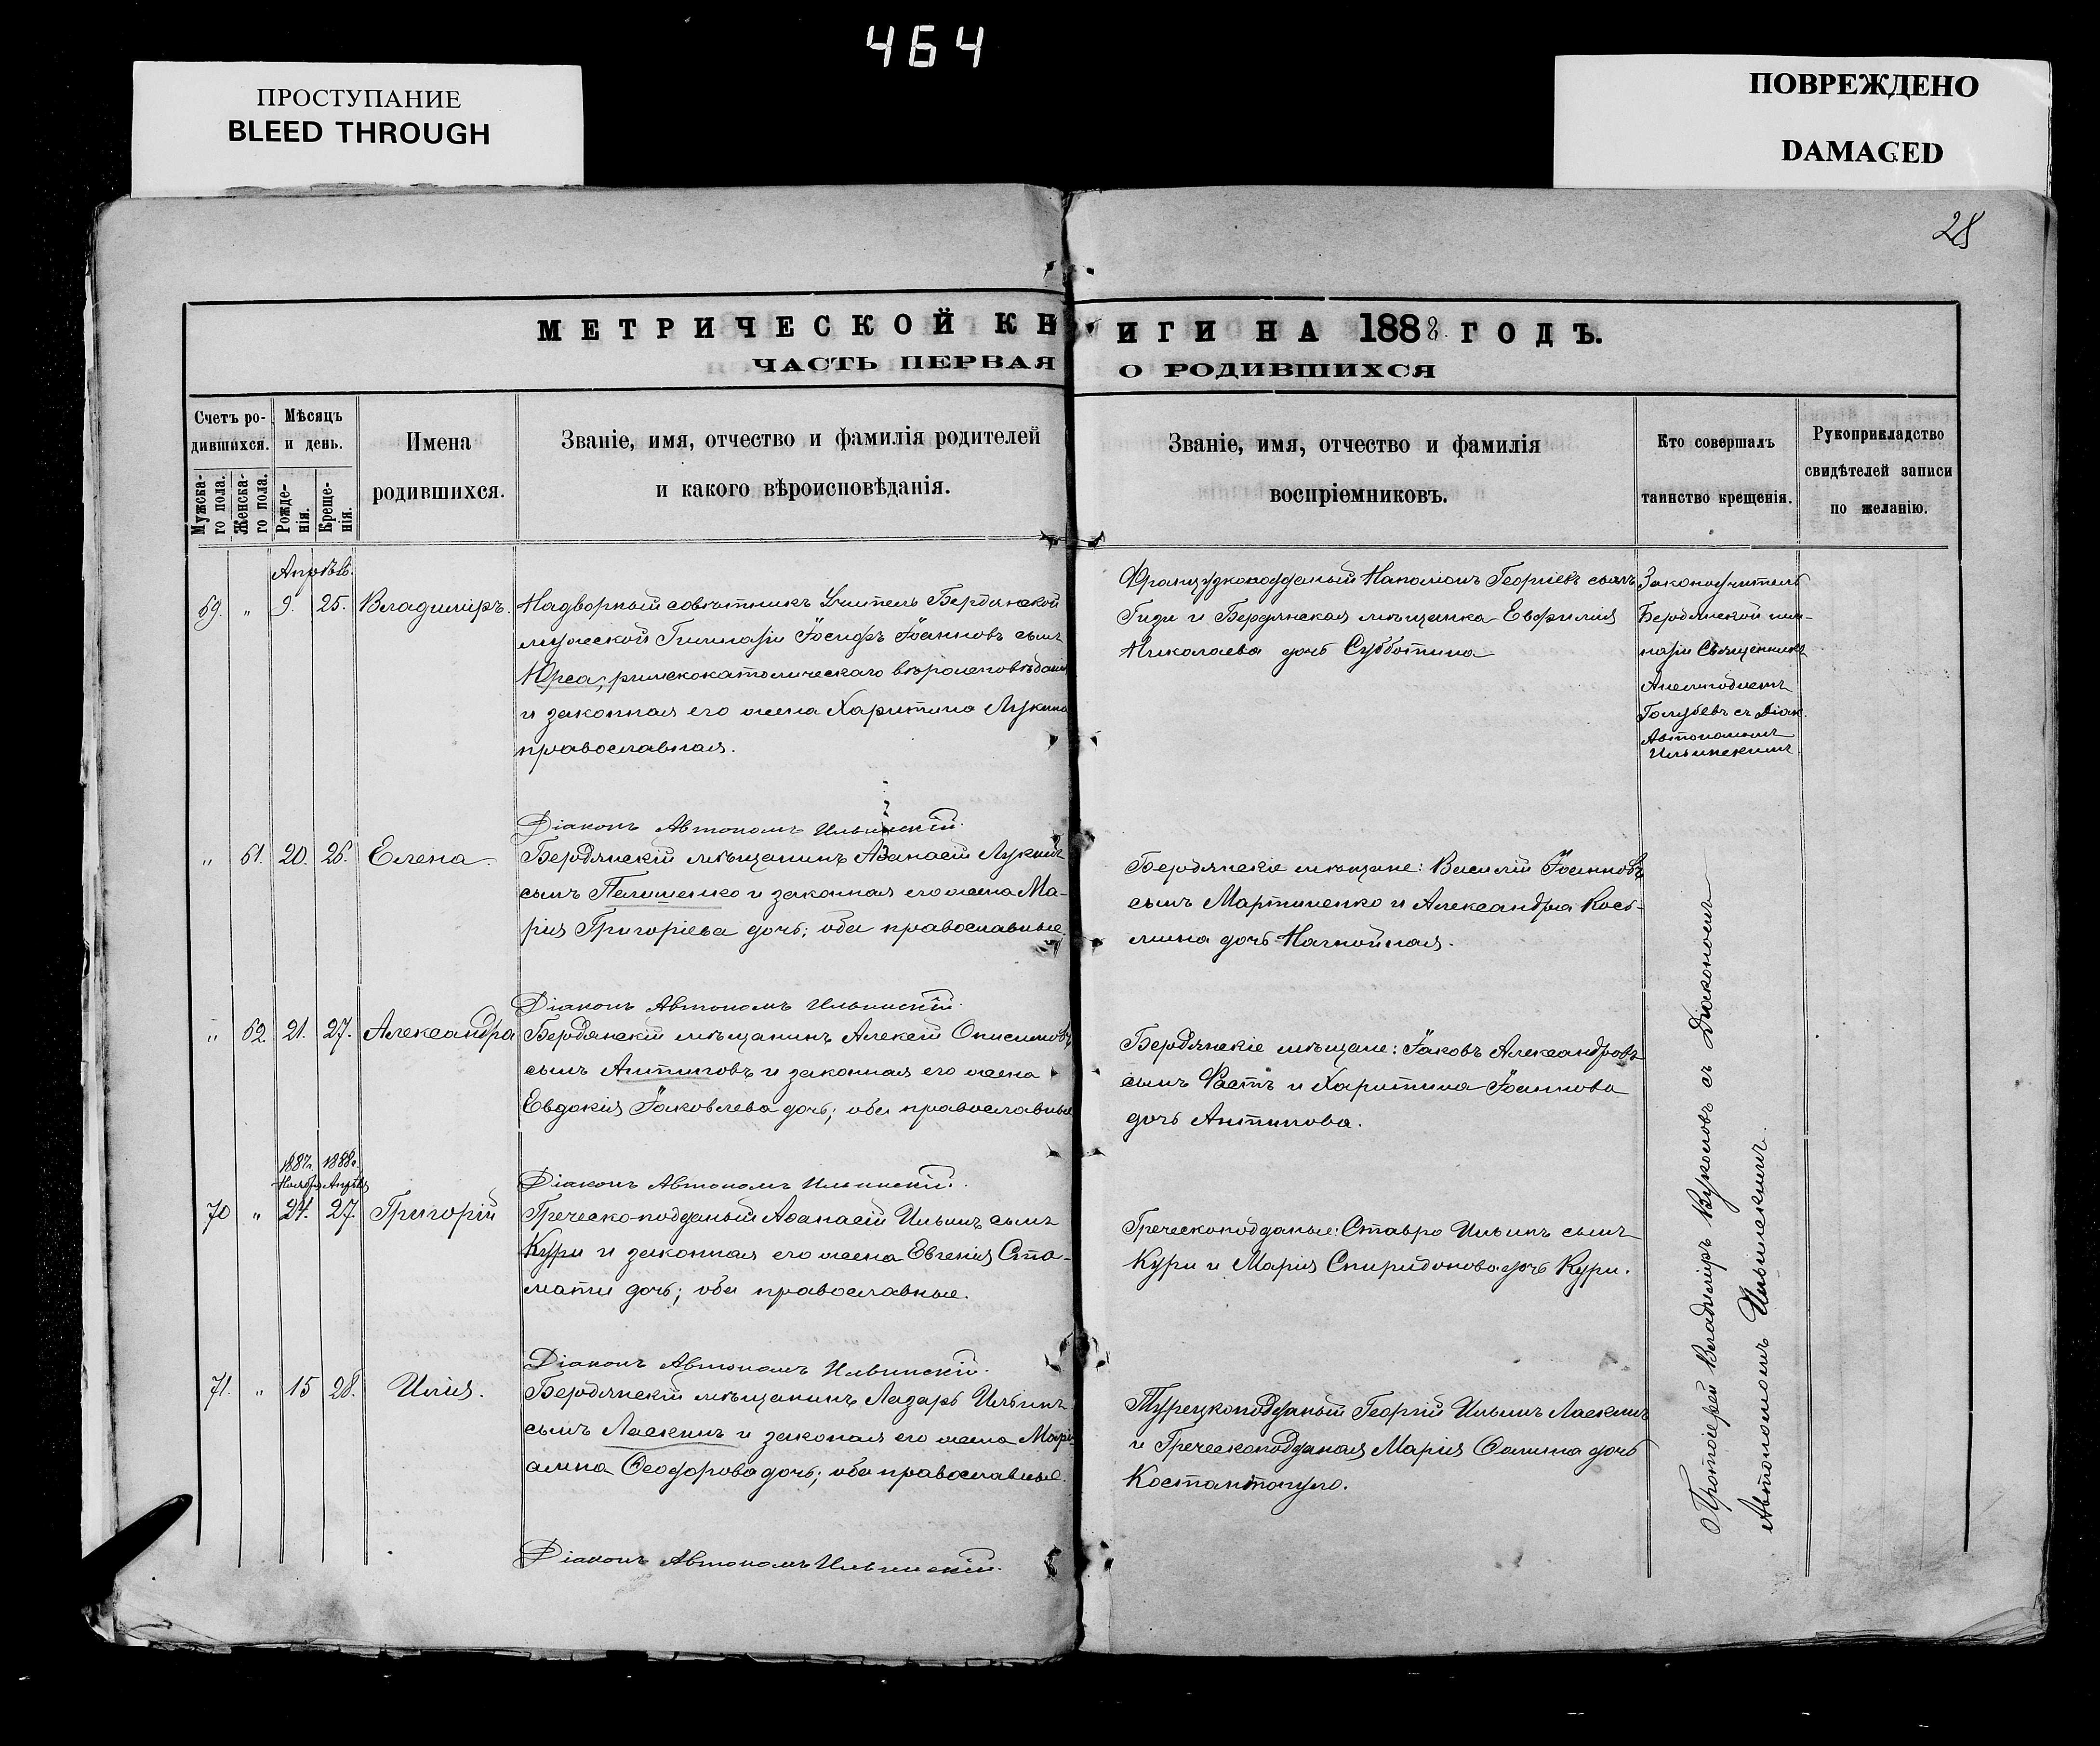 464
ПРОСТУПАНИЕ
BLEED THROUGH
ПОВРЕЖДЕНО
DAMAGED
28
МЕТРИЧЕСКОЙ КН
ИГИ НА 1888 ГОДЪ.
ЧАСТЬ ПЕРВАЯ
О РОДИВШИХСЯ
Счетъ ро-
дившихся.
Мужска-
го пола.
Женска-
го пола.
Мѣсяцъ
и день.
Рожде-
нія.
Креще-
нія.
Имена
родившихся.
Званіе, имя, отчество и фамилія родителей
и какого вѣроисповѣданія.
Званіе, имя, отчество и фамилія
воспріемниковъ.
Кто совершалъ
таинство крещенія.
Рукоприкладство
свидѣтелей записи
по желанію.
Апрѣль.
69. " 9. 25. Владиміръ.
Надворный совѣтникъ Учитель Бердянской
мужеской Гимназіи Іосифъ Іоанновъ сынъ
Юрса, римскокатолическаго вѣроисповѣданія
и законная его жена Харитина Лукина
православная.
Французкоподданый Наполіонъ Георгіевъ сынъ
Гиди и Бердянская мѣщанка Евфимія
Николаева дочь Субботина
Законоучитель
Бердянской гим-
назіи Священникъ
Анемподистъ
Голубевъ съ Діак.
Автономомъ
Ильинскимъ.
Діаконъ Автономъ Ильинскій.
" 61. 20. 26. Елена.
Бердянскій мѣщанинъ Аѳанасій Лукинъ
сынъ Пелишенко и законная его жена Ма-
рія Григоріева дочь; оба православные.
Бердянскіе мѣщане: Василій Іоанновъ
сынъ Мартиненко и Александра Кось-
мина дочь Нагнойная.
Діаконъ Автономъ Ильинскій.
" 62. 21. 27. Александра
Бердянскій мѣщанинъ Алексій Онисимовъ
сынъ Антиповъ и законная его жена
Евдокія Іаковлева дочь; оба православные
Бердянскіе мѣщане: Іаковъ Александровъ
сынъ Фастъ и Харитина Іоаннова
дочь Антипова.
Діаконъ Автономъ Ильинскій.
1887г. 1888г.
Ноября Апрѣля
70 " 24. 27. Григорій
Греческо-подданый Аѳанасій Ильинъ сынъ
Кури и законная его жена Евгенія Ста-
мати дочь; оба православные.
Греческоподданые: Ставро Ильинъ сынъ
Кури и Марія Спиридонова дочь Кури.
Діаконъ Автономъ Ильинскій.
71. " 15 28. Илія.
Бердянскій мѣщанинъ Лазарь Ильинъ
сынъ Ласкинъ и законая его жена Марі-
амна Ѳеодорова дочь; оба православные.
Турецкоподданый Георгій Ильинъ Ласкинъ
и Греческоподданая Марія Ѳомина дочь
Костантопуло.
Діаконъ Автономъ Ильинскій.
Протоіерей Владиміръ Вуколовъ съ Діакономъ
Автономомъ Ильинскимъ.